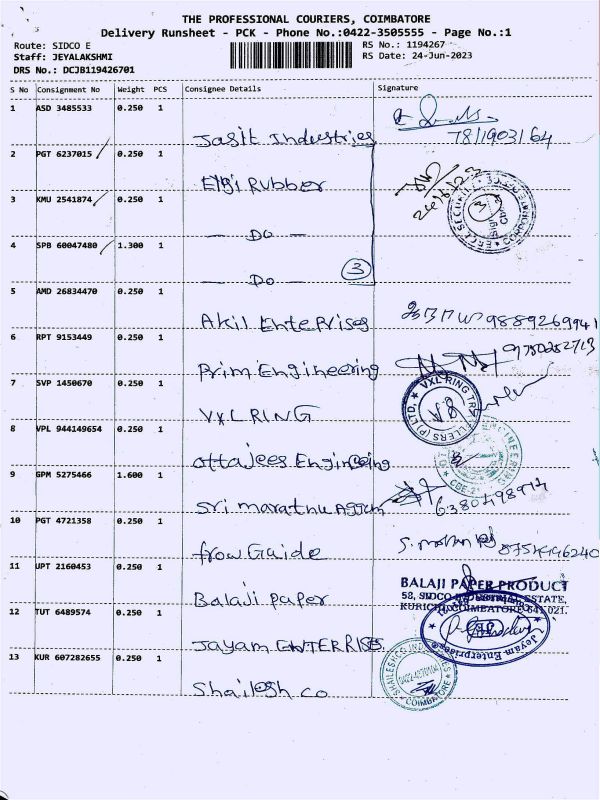 THE PROFESSIONAL COURIERS, COIMBATORE
Delivery Runsheet - PCK - Phone No.:0422-3505555 - Page No.:1
Route: SIDCO E
RS No.: 1194267
Staff: JEYALAKSHMI
RS Date: 24-Jun-2023
DRS No.: DCJB119426701
S No Consignment No Weight PCS Consignee Details Signature
1 ASD 3485533 0.250 1
Jasit Industries 7811903164
2 PGT 6237015 0.250 1
Elgi Rubber 24/6/23
3 KMU 2541874 0.250 1
— Do —
4 SPB 60047480 1.300 1
— Do — 3
5 AMD 26834470 0.250 1
Akil Enteprises 9889269941
6 RPT 9153449 0.250 1
Prim Engineering
7 SVP 1450670 0.250 1
VXL RING
VXL RING TRAVELLERS (P) LTD,
8 VPL 944149654 0.250 1
ottajees Engineeing
9 GPM 5275466 1.600 1
Sri marathu Agcm 6380498974
10 PGT 4721358 0.250 1
frow Guide
11 UPT 2160453 0.250 1
Balaji paper
BALAJI PAPER PRODUCT
58, SIDCO INDUSTRIAL ESTATE,
KURICHI, COIMBATORE-641 021.
12 TUT 6489574 0.250 1
Jayam ENTERRISES.
Jeyam Enterprises
13 KUR 607282655 0.250 1
Shailesh co
SHAILESHCO INDUSTRIES
COIMBATORE